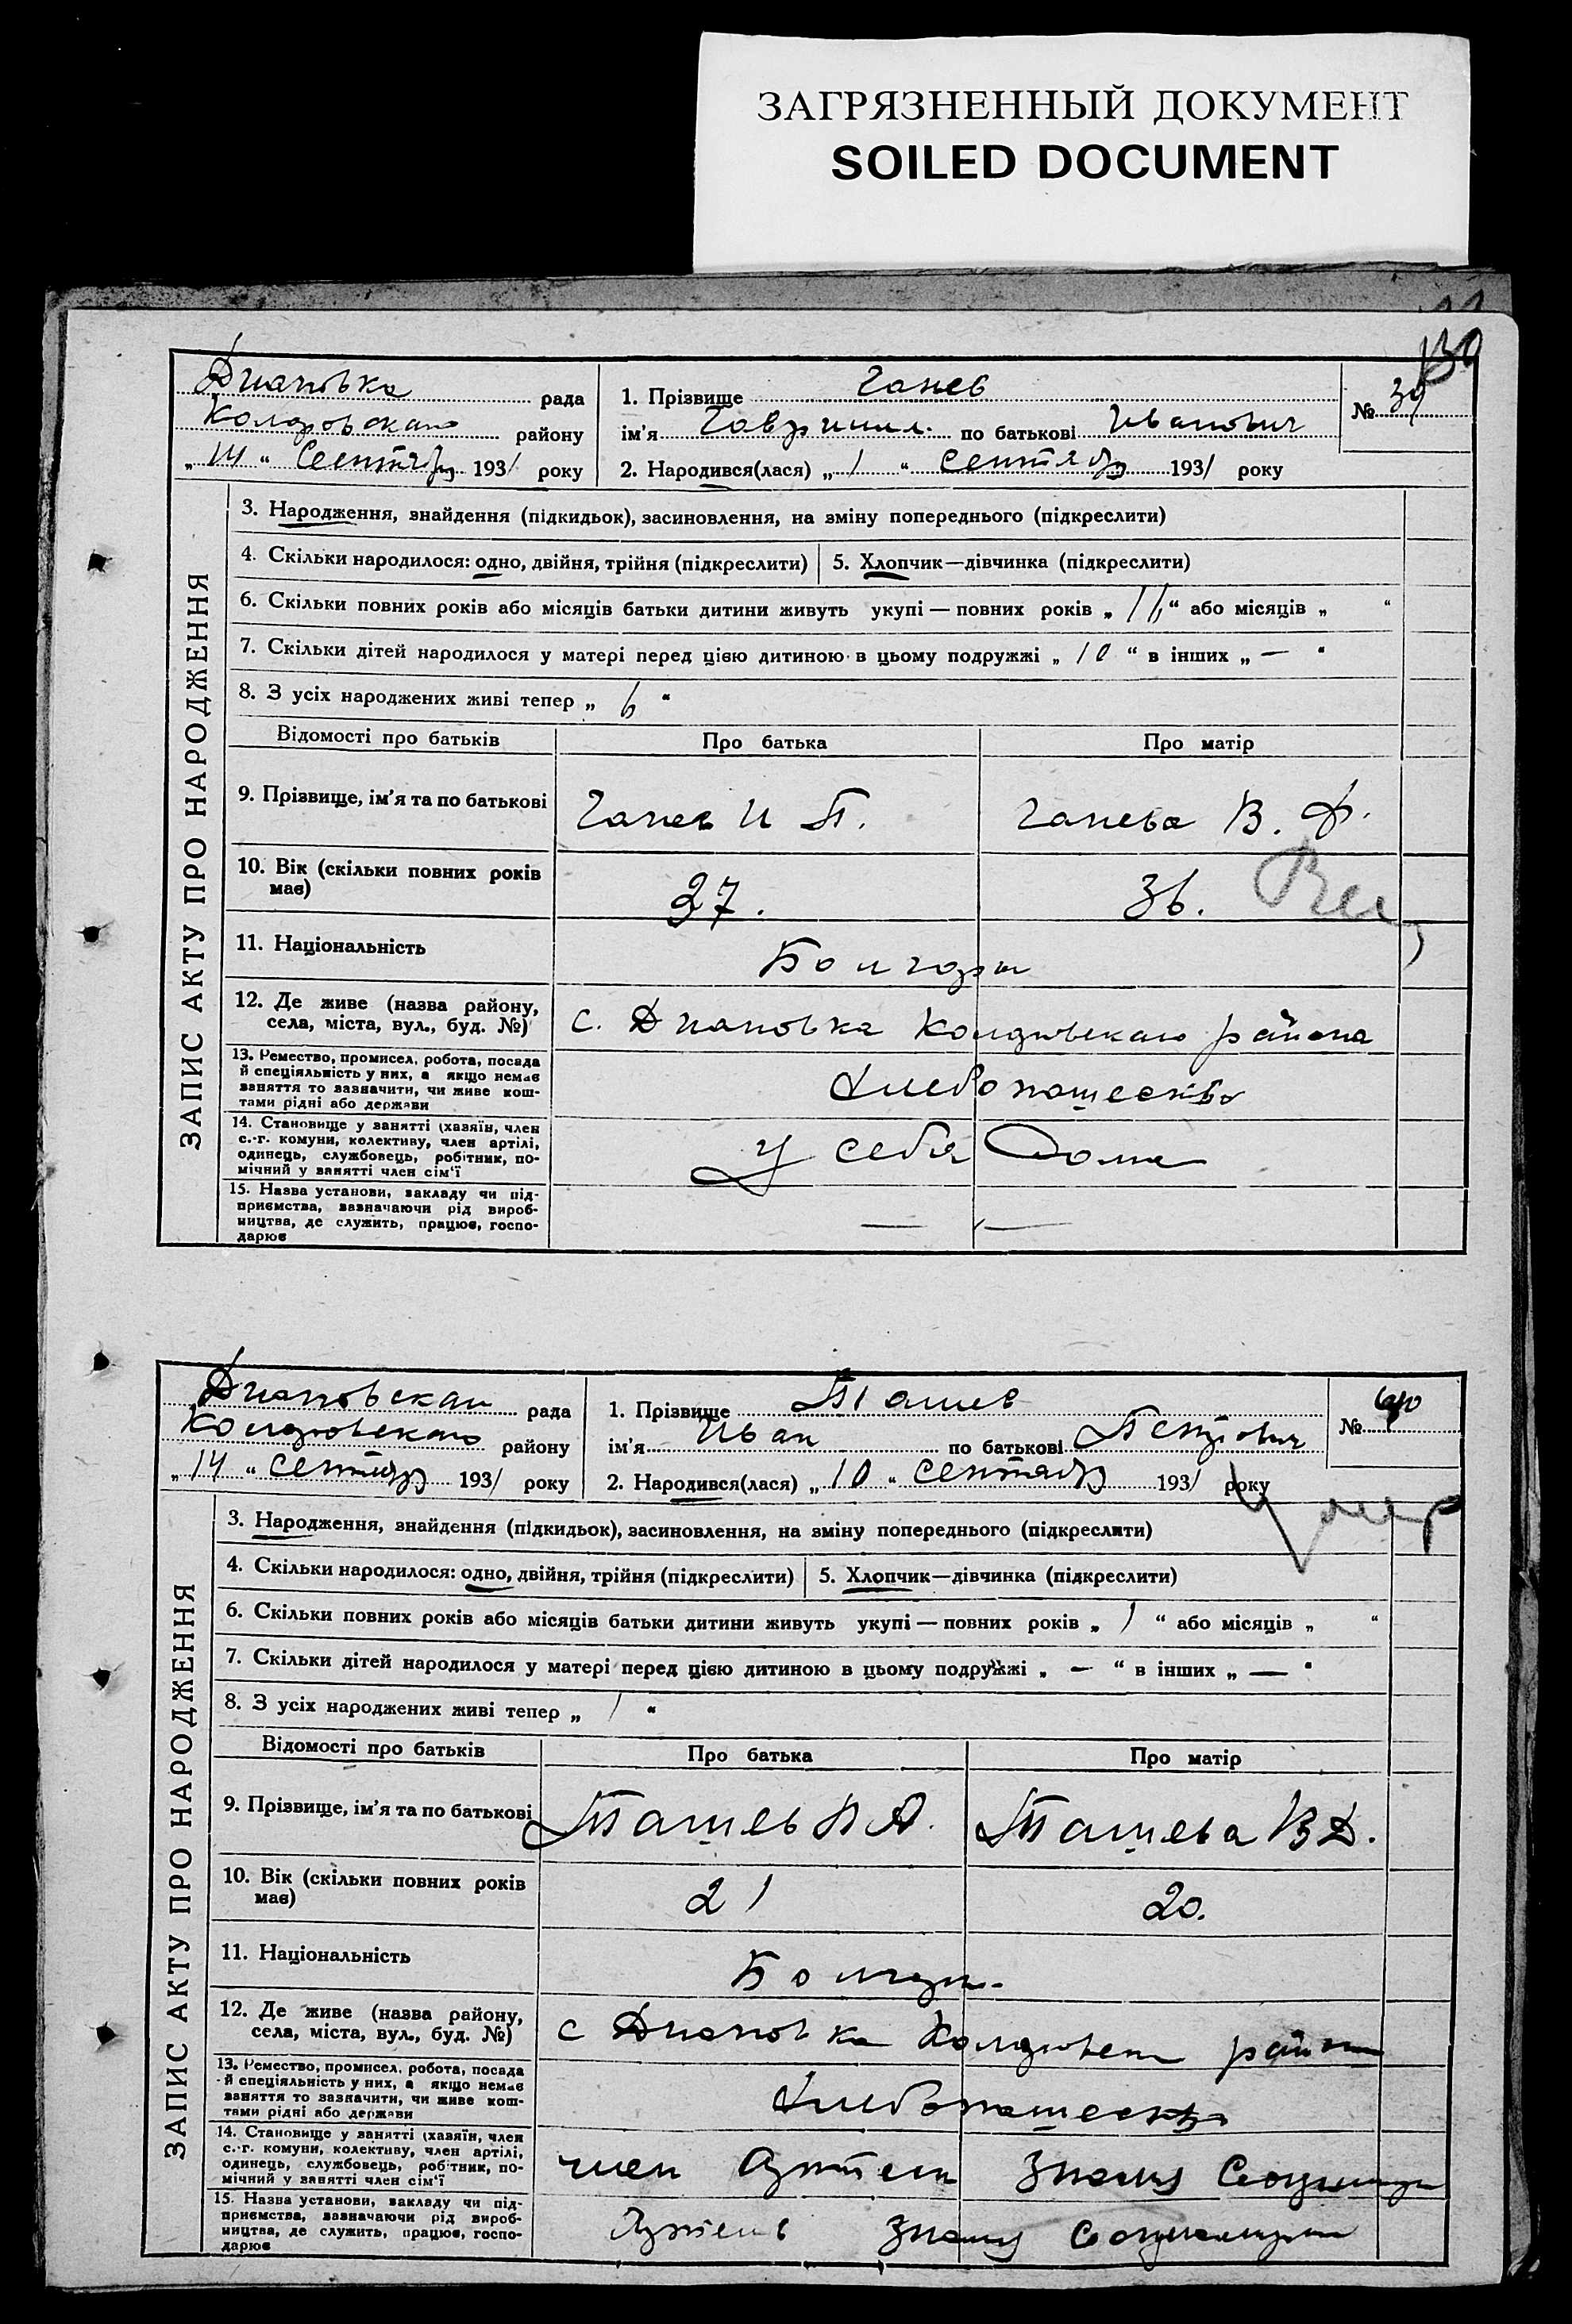 ЗАГРЯЗНЕННЫЙ ДОКУМЕНТ
SOILED DOCUMENT
130
Диановка рада
района району
„14“ Сентября 1931 року
1. Прізвище Ганев
№ 39
ім'я Гавриил по батькові Иванович
2. Народився(лася) „1“ Сентября 1931 року
ЗАПИС АКТУ ПРО НАРОДЖЕННЯ
3. Народження, знайдення (підкидьок), засиновлення, на зміну попереднього (підкреслити)
4. Скільки народилося: одно, двійня, трійня (підкреслити) 5. Хлопчик—дівчинка (підкреслити)
6. Скільки повних років або місяців батьки дитини живуть укупі — повних років „16“ або місяців „ “
7. Скільки дітей народилося у матері перед цією дитиною в цьому подружжі „10“ в інших „—“
8. З усіх народжених живі тепер „6“
Відомості про батьків Про батька Про матір
9. Прізвище, ім'я та по батькові Ганев И П. Ганева В. Ф.
10. Вік (скільки повних років має) 37. 36.
11. Національність Болгары
12. Де живе (назва району, села, міста, вул., буд. №) с. Диановка района
13. Ремество, промисел, робота, посада
й спеціяльність у них, а якщо немає
заняття то зазначити, чи живе кош-
тами рідні або держави
Хлебопашество
14. Становище у занятті (хазяїн, член
с.-г. комуни, колективу, член артілі,
одинець, службовець, робітник, по-
мічний у занятті член сім'ї
у себя Дома
15. Назва установи, закладу чи під-
приємства, зазначаючи рід вироб-
ництва, де служить, працює, госпо-
дарює
— —
Диановская рада
району
„14“ Сентября 1931 року
1. Прізвище Ташев
№ 40
ім'я Иван по батькові Петрович
2. Народився(лася) „10“ Сентября 1931 року
умер
ЗАПИС АКТУ ПРО НАРОДЖЕННЯ
3. Народження, знайдення (підкидьок), засиновлення, на зміну попереднього (підкреслити)
4. Скільки народилося: одно, двійня, трійня (підкреслити) 5. Хлопчик—дівчинка (підкреслити)
6. Скільки повних років або місяців батьки дитини живуть укупі — повних років „1“ або місяців „ “
7. Скільки дітей народилося у матері перед цією дитиною в цьому подружжі „—“ в інших „—“
8. З усіх народжених живі тепер „1“
Відомості про батьків Про батька Про матір
9. Прізвище, ім'я та по батькові Ташев П А. Ташева В Д.
10. Вік (скільки повних років має) 21 20.
11. Національність Болгары
12. Де живе (назва району, села, міста, вул., буд. №) с Диановка района
13. Ремество, промисел, робота, посада
й спеціяльність у них, а якщо немає
заняття то зазначити, чи живе кош-
тами рідні або держави
Хлебопашество
14. Становище у занятті (хазяїн, член
с.-г. комуни, колективу, член артілі,
одинець, службовець, робітник, по-
мічний у занятті член сім'ї
член Артели Знамя
15. Назва установи, закладу чи під-
приємства, зазначаючи рід вироб-
ництва, де служить, працює, госпо-
дарює
Артель Знамя